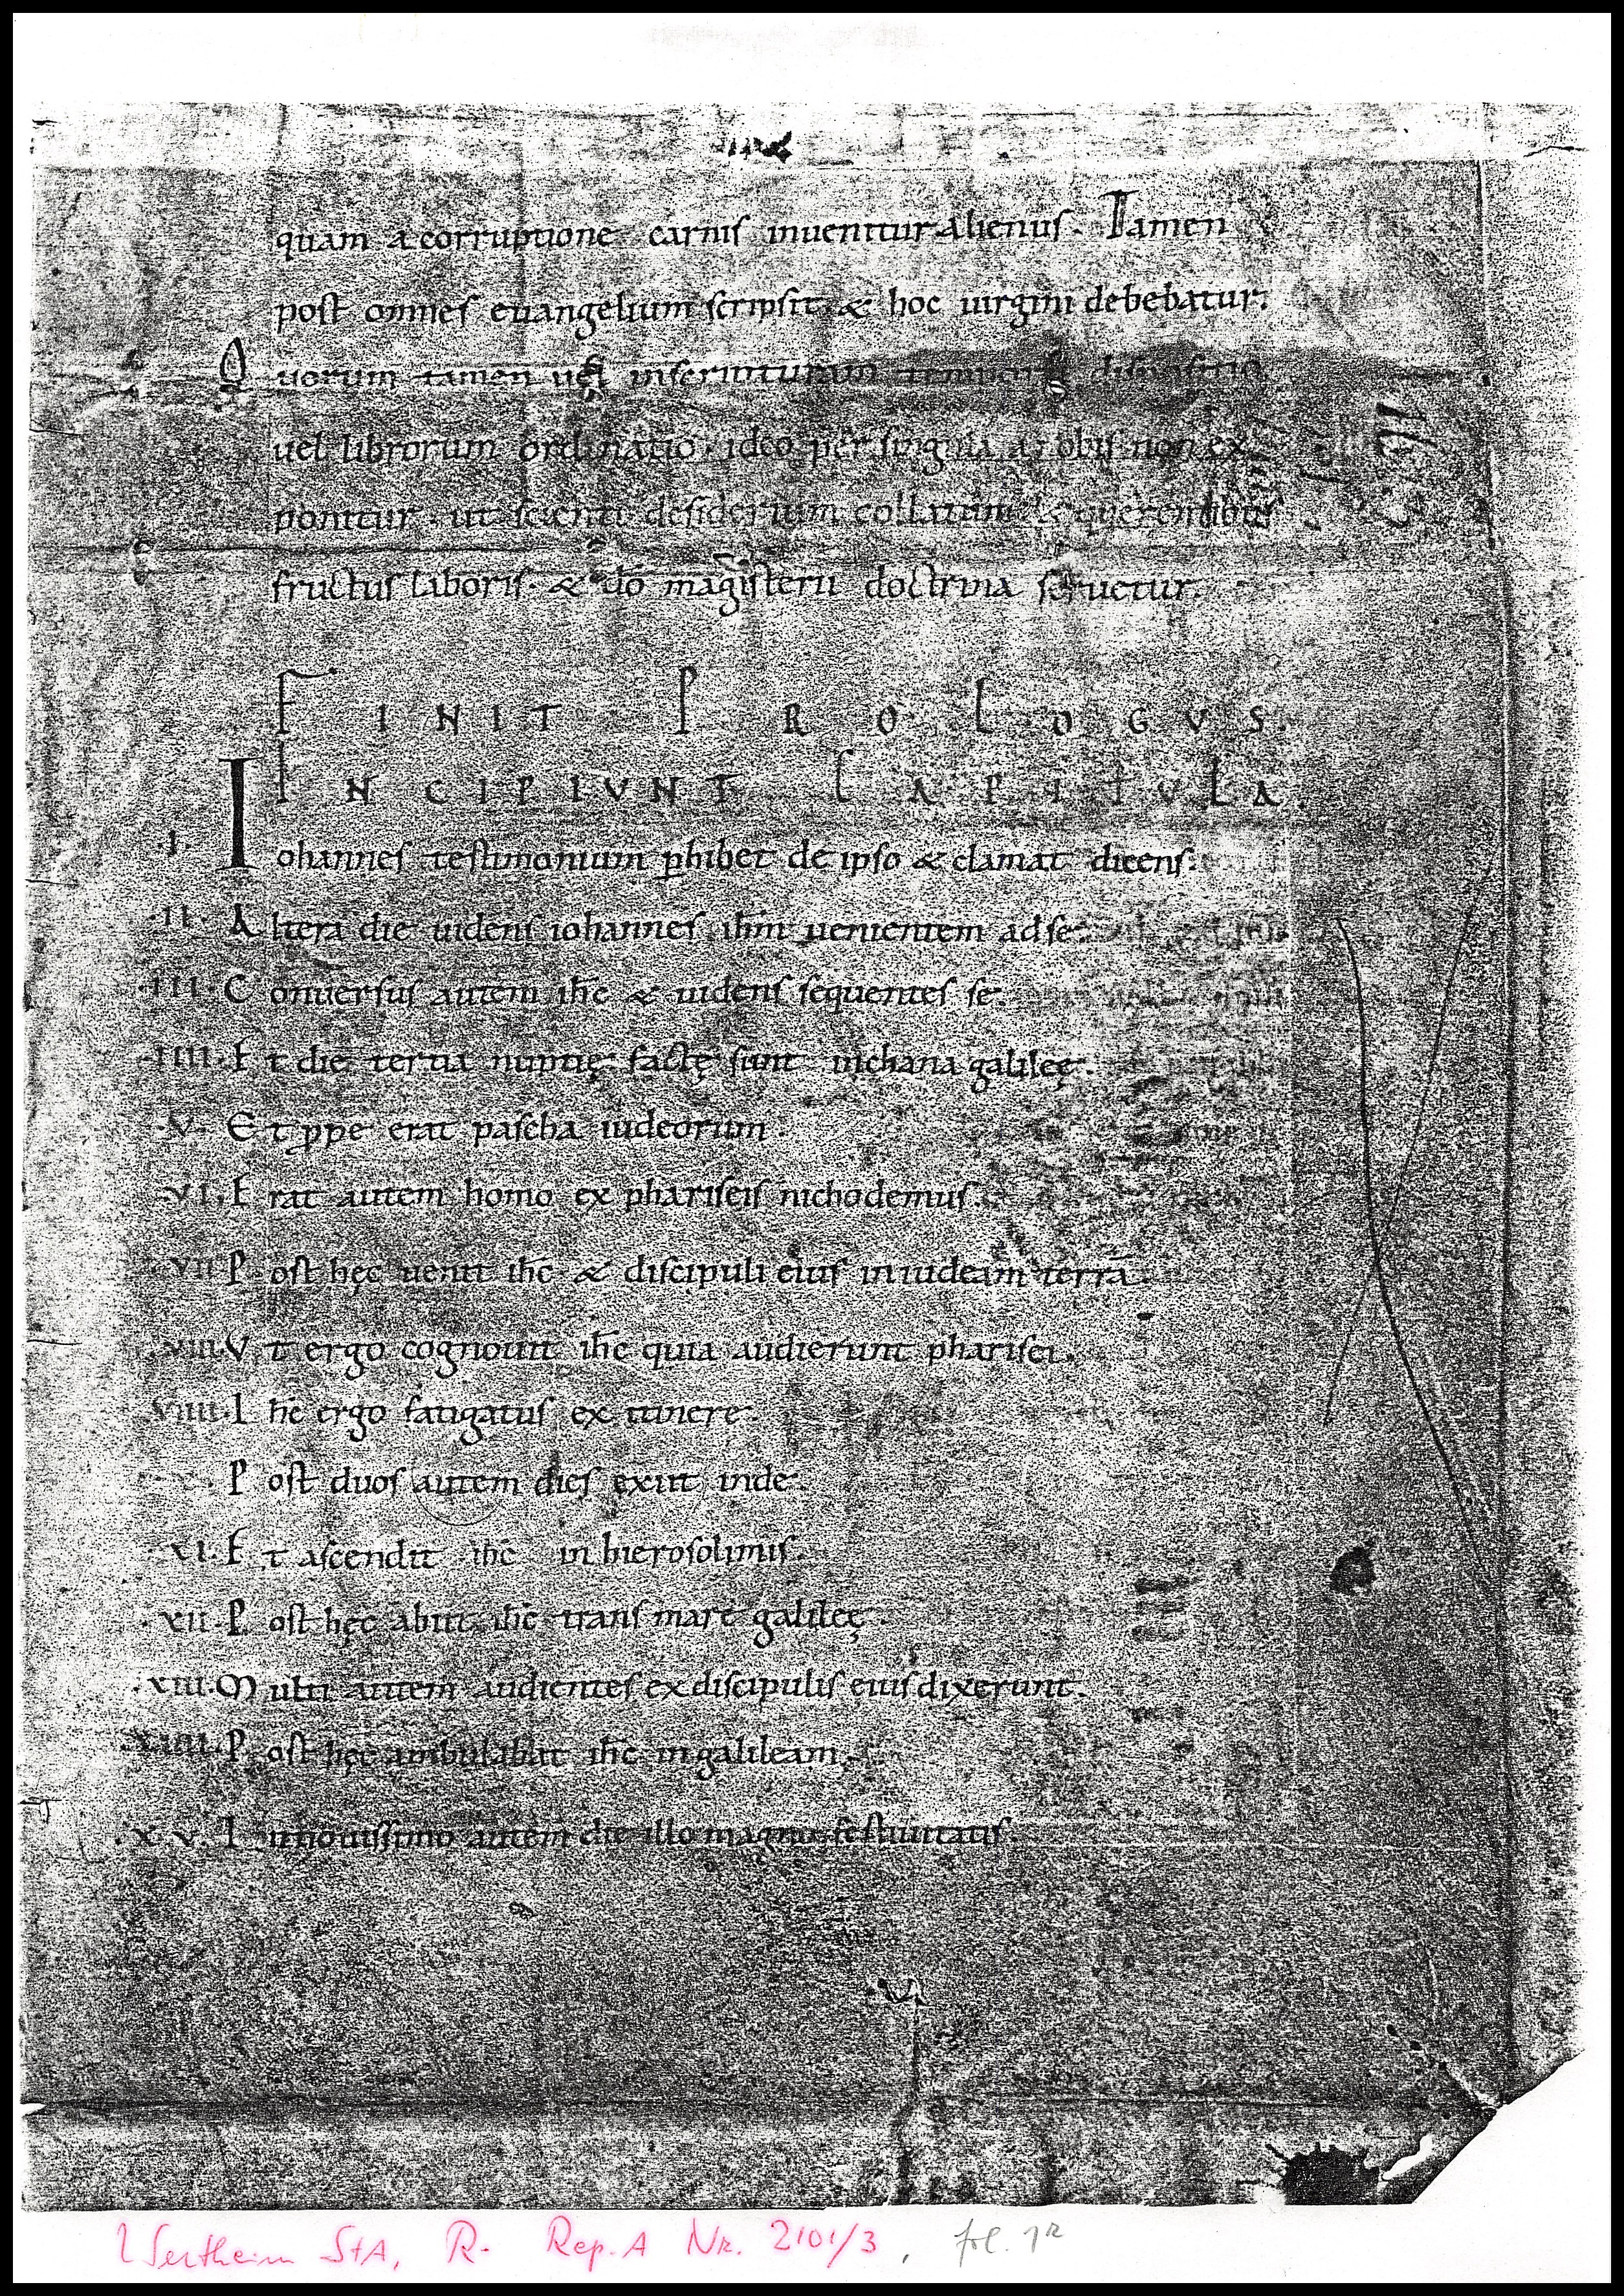 quam a corruptione carnis inuenitur alienus. Tamen
post omnes euangelium scripsit, & hoc uirgini debebatur.
Quorum tamen uel inscripturarum temporis dispositio
uel librorum ordinatio. ideo per singula a nobis non ex
ponitur. ut sciendi desiderium & querentibus
fructus laboris. & dō magisterii doctrina seruetur.
FINIT PROLOGUS.
INCIPIVNT CAPITVLA.
.I. Iohannes testimonium phibet de ipso & clamat dicens.
.II. Altera die uidens iohannes ihm uenientem ad se.
.III. Conuersus autem ihc & uidens sequentes se.
.IIII. Et die tertia nuptię factę sunt in chana galileę.
.V. Et ppe erat pascha iudeorum.
.VI. Erat autem homo ex phariseis nichodemus.
.VII Post hęc uenit ihc & discipuli eius in iudeam terrā.
.VIII. Vt ergo cognouit ihc quia audierunt pharisei.
VIIII. Ihc ergo fatigatus ex itinere.
Post duos autem dies exiit inde.
.XI. Et ascendit ihc in hierosolimis.
.XII. Post hęc abiit ihc trans mare galileę.
.XIII. Multi autem audientes ex discipulis eius dixerunt.
.XIIII. Post hęc ambulabat ihc in galileam.
.XV. In nouissimo autem die illo magno festiuitatis.
Wertheim StA, R- Rep. A Nr. 2101/3, fol. 1r